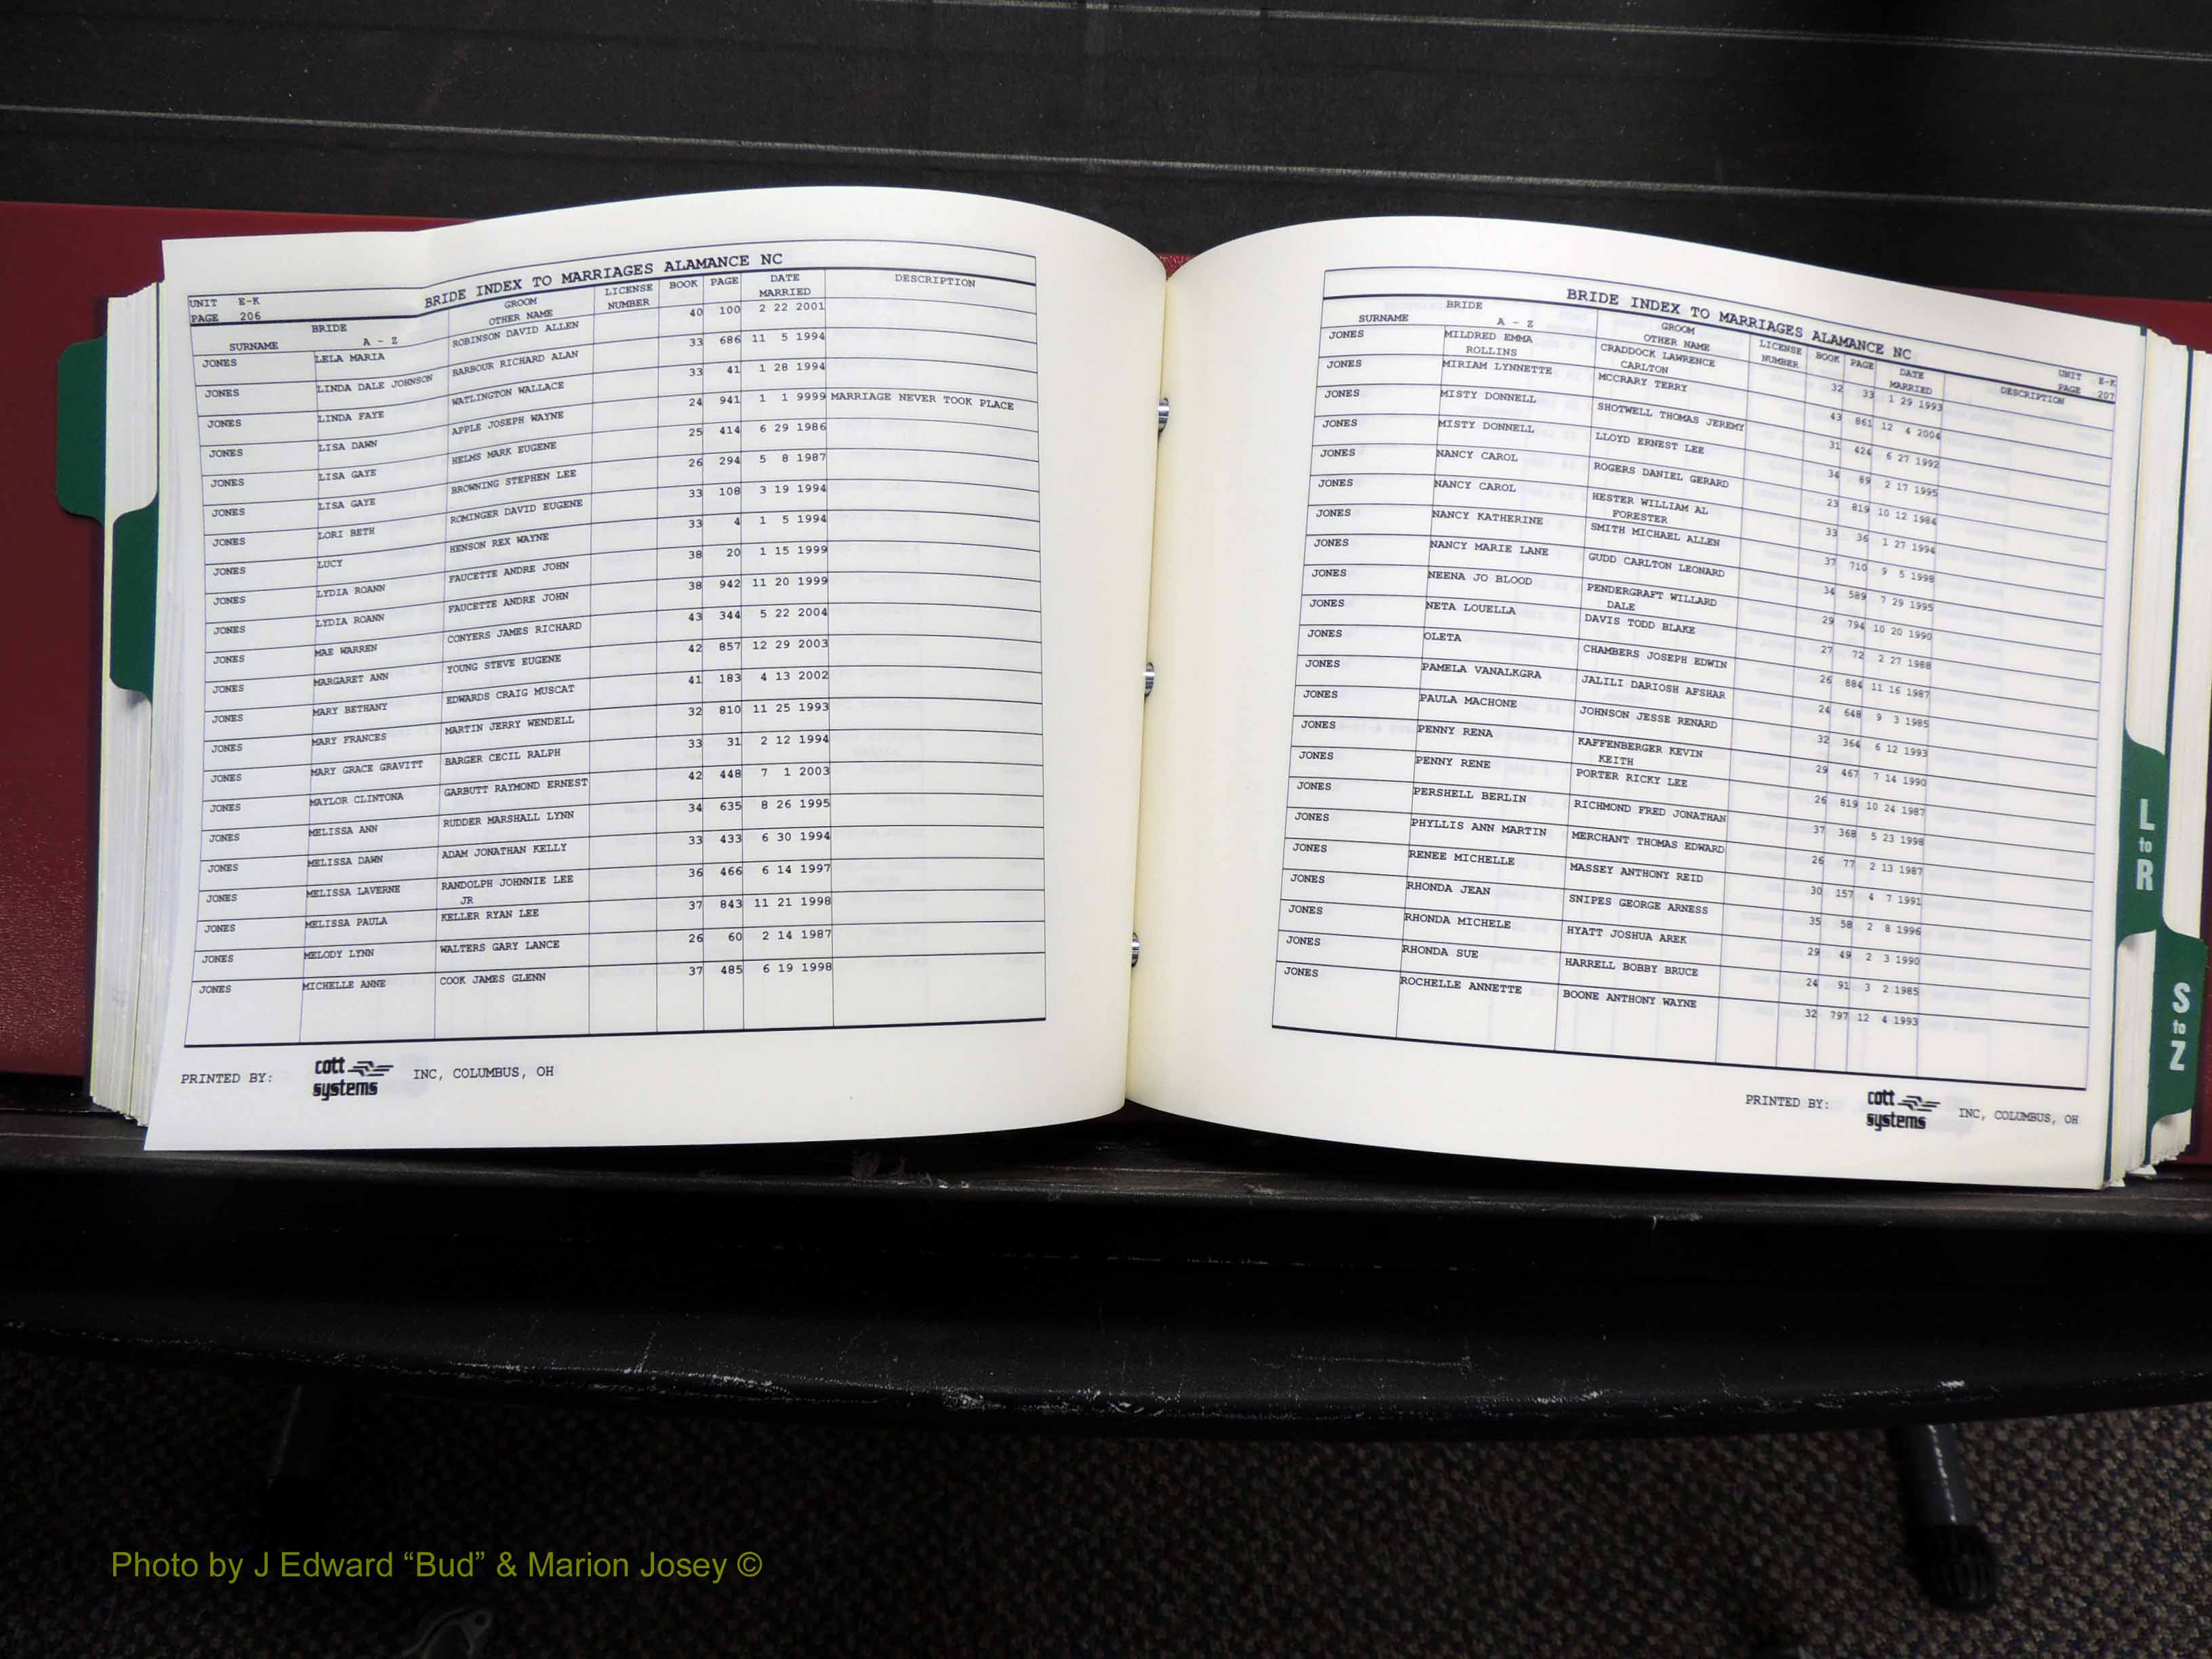 UNIT E-K
PAGE 206
BRIDE INDEX TO MARRIAGES ALAMANCE NC
BRIDE GROOM LICENSE BOOK PAGE DATE DESCRIPTION
SURNAME A - Z OTHER NAME NUMBER MARRIED
JONES LELA MARIA ROBINSON DAVID ALLEN 40 100 2 22 2001
JONES LINDA DALE JOHNSON BARBOUR RICHARD ALAN 33 686 11 5 1994
JONES LINDA FAYE WATLINGTON WALLACE 33 41 1 28 1994
JONES LISA DAWN APPLE JOSEPH WAYNE 24 941 1 1 9999 MARRIAGE NEVER TOOK PLACE
JONES LISA GAYE HELMS MARK EUGENE 25 414 6 29 1986
JONES LISA GAYE BROWNING STEPHEN LEE 26 294 5 8 1987
JONES LORI BETH ROMINGER DAVID EUGENE 33 108 3 19 1994
JONES LUCY HENSON REX WAYNE 33 4 1 5 1994
JONES LYDIA ROANN FAUCETTE ANDRE JOHN 38 20 1 15 1999
JONES LYDIA ROANN FAUCETTE ANDRE JOHN 38 942 11 20 1999
JONES MAE WARREN CONYERS JAMES RICHARD 43 344 5 22 2004
JONES MARGARET ANN YOUNG STEVE EUGENE 42 857 12 29 2003
JONES MARY BETHANY EDWARDS CRAIG MUSCAT 41 183 4 13 2002
JONES MARY FRANCES MARTIN JERRY WENDELL 32 810 11 25 1993
JONES MARY GRACE GRAVITT BARGER CECIL RALPH 33 31 2 12 1994
JONES MAYLOR CLINTONA GARBUTT RAYMOND ERNEST 42 448 7 1 2003
JONES MELISSA ANN RUDDER MARSHALL LYNN 34 635 8 26 1995
JONES MELISSA DAWN ADAM JONATHAN KELLY 33 433 6 30 1994
JONES MELISSA LAVERNE RANDOLPH JOHNNIE LEE 36 466 6 14 1997
JR
JONES MELISSA PAULA KELLER RYAN LEE 37 843 11 21 1998
JONES MELODY LYNN WALTERS GARY LANCE 26 60 2 14 1987
JONES MICHELLE ANNE COOK JAMES GLENN 37 485 6 19 1998
PRINTED BY: cott systems INC, COLUMBUS, OH
BRIDE INDEX TO MARRIAGES ALAMANCE NC
UNIT E-K
PAGE 207
BRIDE GROOM LICENSE BOOK PAGE DATE DESCRIPTION
SURNAME A - Z OTHER NAME NUMBER MARRIED
JONES MILDRED EMMA CRADDOCK LAWRENCE 32 33 1 29 1993
ROLLINS CARLTON
JONES MIRIAM LYNNETTE MCCRARY TERRY 43 861 12 4 2004
JONES MISTY DONNELL SHOTWELL THOMAS JEREMY 31 424 6 27 1992
JONES MISTY DONNELL LLOYD ERNEST LEE 34 89 2 17 1995
JONES NANCY CAROL ROGERS DANIEL GERARD 23 819 10 12 1984
JONES NANCY CAROL HESTER WILLIAM AL 33 36 1 27 1994
FORESTER
JONES NANCY KATHERINE SMITH MICHAEL ALLEN 37 710 9 5 1998
JONES NANCY MARIE LANE GUDD CARLTON LEONARD 34 589 7 29 1995
JONES NEENA JO BLOOD PENDERGRAFT WILLARD 29 794 10 20 1990
DALE
JONES NETA LOUELLA DAVIS TODD BLAKE 27 72 2 27 1988
JONES OLETA CHAMBERS JOSEPH EDWIN 26 884 11 16 1987
JONES PAMELA VANALKGRA JALILI DARIOSH AFSHAR 24 648 9 3 1985
JONES PAULA MACHONE JOHNSON JESSE RENARD 32 364 6 12 1993
JONES PENNY RENA KAFFENBERGER KEVIN 29 467 7 14 1990
KEITH
JONES PENNY RENE PORTER RICKY LEE 26 819 10 24 1987
JONES PERSHELL BERLIN RICHMOND FRED JONATHAN 37 368 5 23 1998
JONES PHYLLIS ANN MARTIN MERCHANT THOMAS EDWARD 26 77 2 13 1987
JONES RENEE MICHELLE MASSEY ANTHONY REID 30 157 4 7 1991
JONES RHONDA JEAN SNIPES GEORGE ARNESS 35 58 2 8 1996
JONES RHONDA MICHELE HYATT JOSHUA AREK 29 49 2 3 1990
JONES RHONDA SUE HARRELL BOBBY BRUCE 24 91 3 2 1985
JONES ROCHELLE ANNETTE BOONE ANTHONY WAYNE 32 797 12 4 1993
PRINTED BY: cott systems INC, COLUMBUS, OH
L
to
R
S
to
Z
Photo by J Edward “Bud” & Marion Josey ©